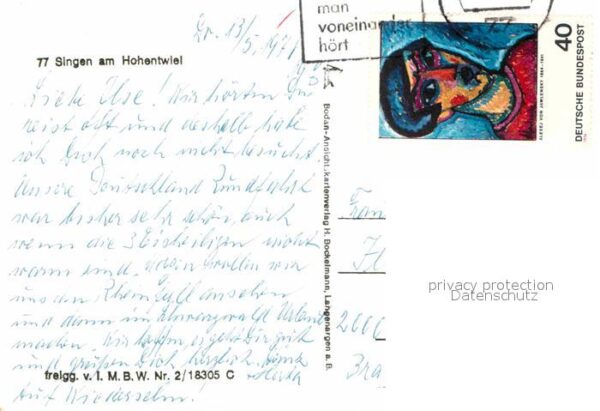 man
voneinander
hört
77
40
DEUTSCHE BUNDESPOST
77 Singen am Hohentwiel
Liebe Else! Wir hörten Du
seist oft und deshalb habe
ich Dich noch nicht besucht.
Unsere Deutschland Rundfahrt
war bisher sehr schön, auch
wenn die 3 Eisheiligen nicht
warm sind. wollen wir
uns den Rheinfall ansehen
und dann im Schwarzwald Urlaub
machen. Wir hoffen, es geht Dir gut
und grüßen Dich herzlich
freigg. v. I. M. B. W. Nr. 2/18305 C
Auf Wiedersehn!
Bodan-Ansichtskartenverlag H. Bockelmann, Langenargen a. B.
Frau
H
2000
Bra
privacy protection
Datenschutz